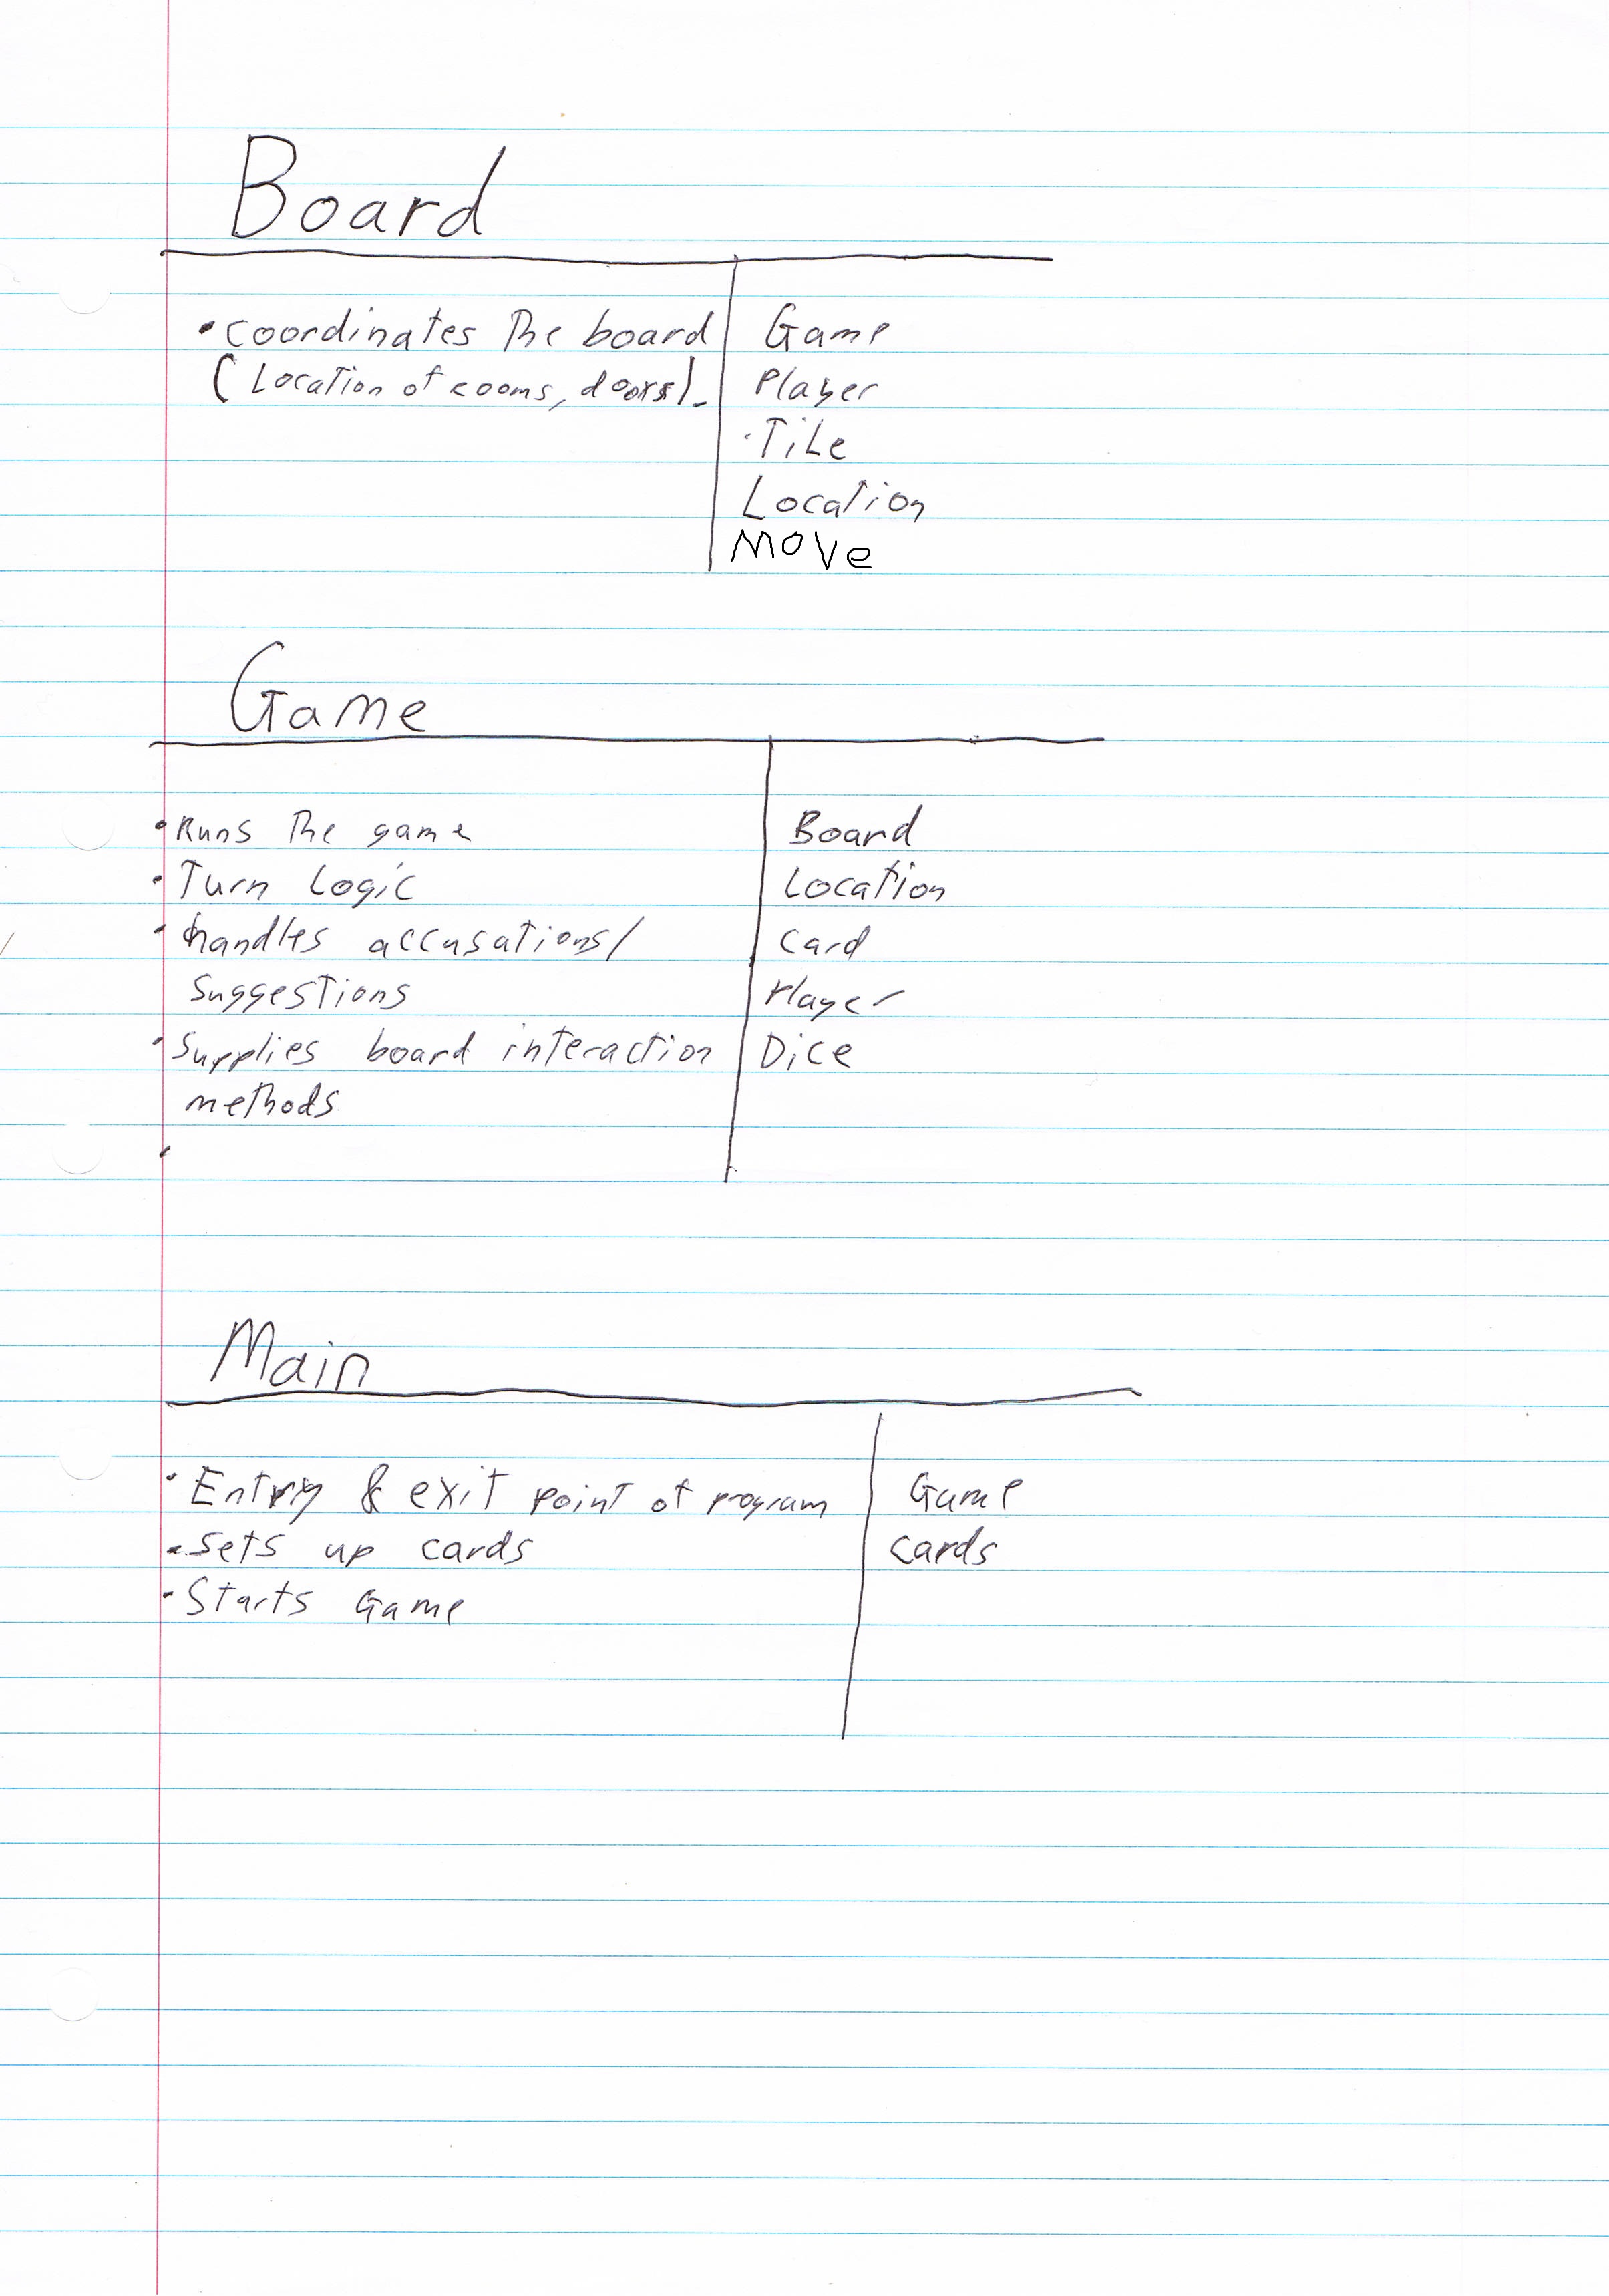 Board
• coordinates The board
(Location of rooms, doors).
Game
Player
Tile
Location
Move
Game
• Runs The game
• Turn Logic
• handles accusations/
suggestions
• Supplies board interaction
methods
•
Board
Location
Card
Player
Dice
Main
• Entry & exit point of program
• Sets up cards
• Starts Game
Game
cards